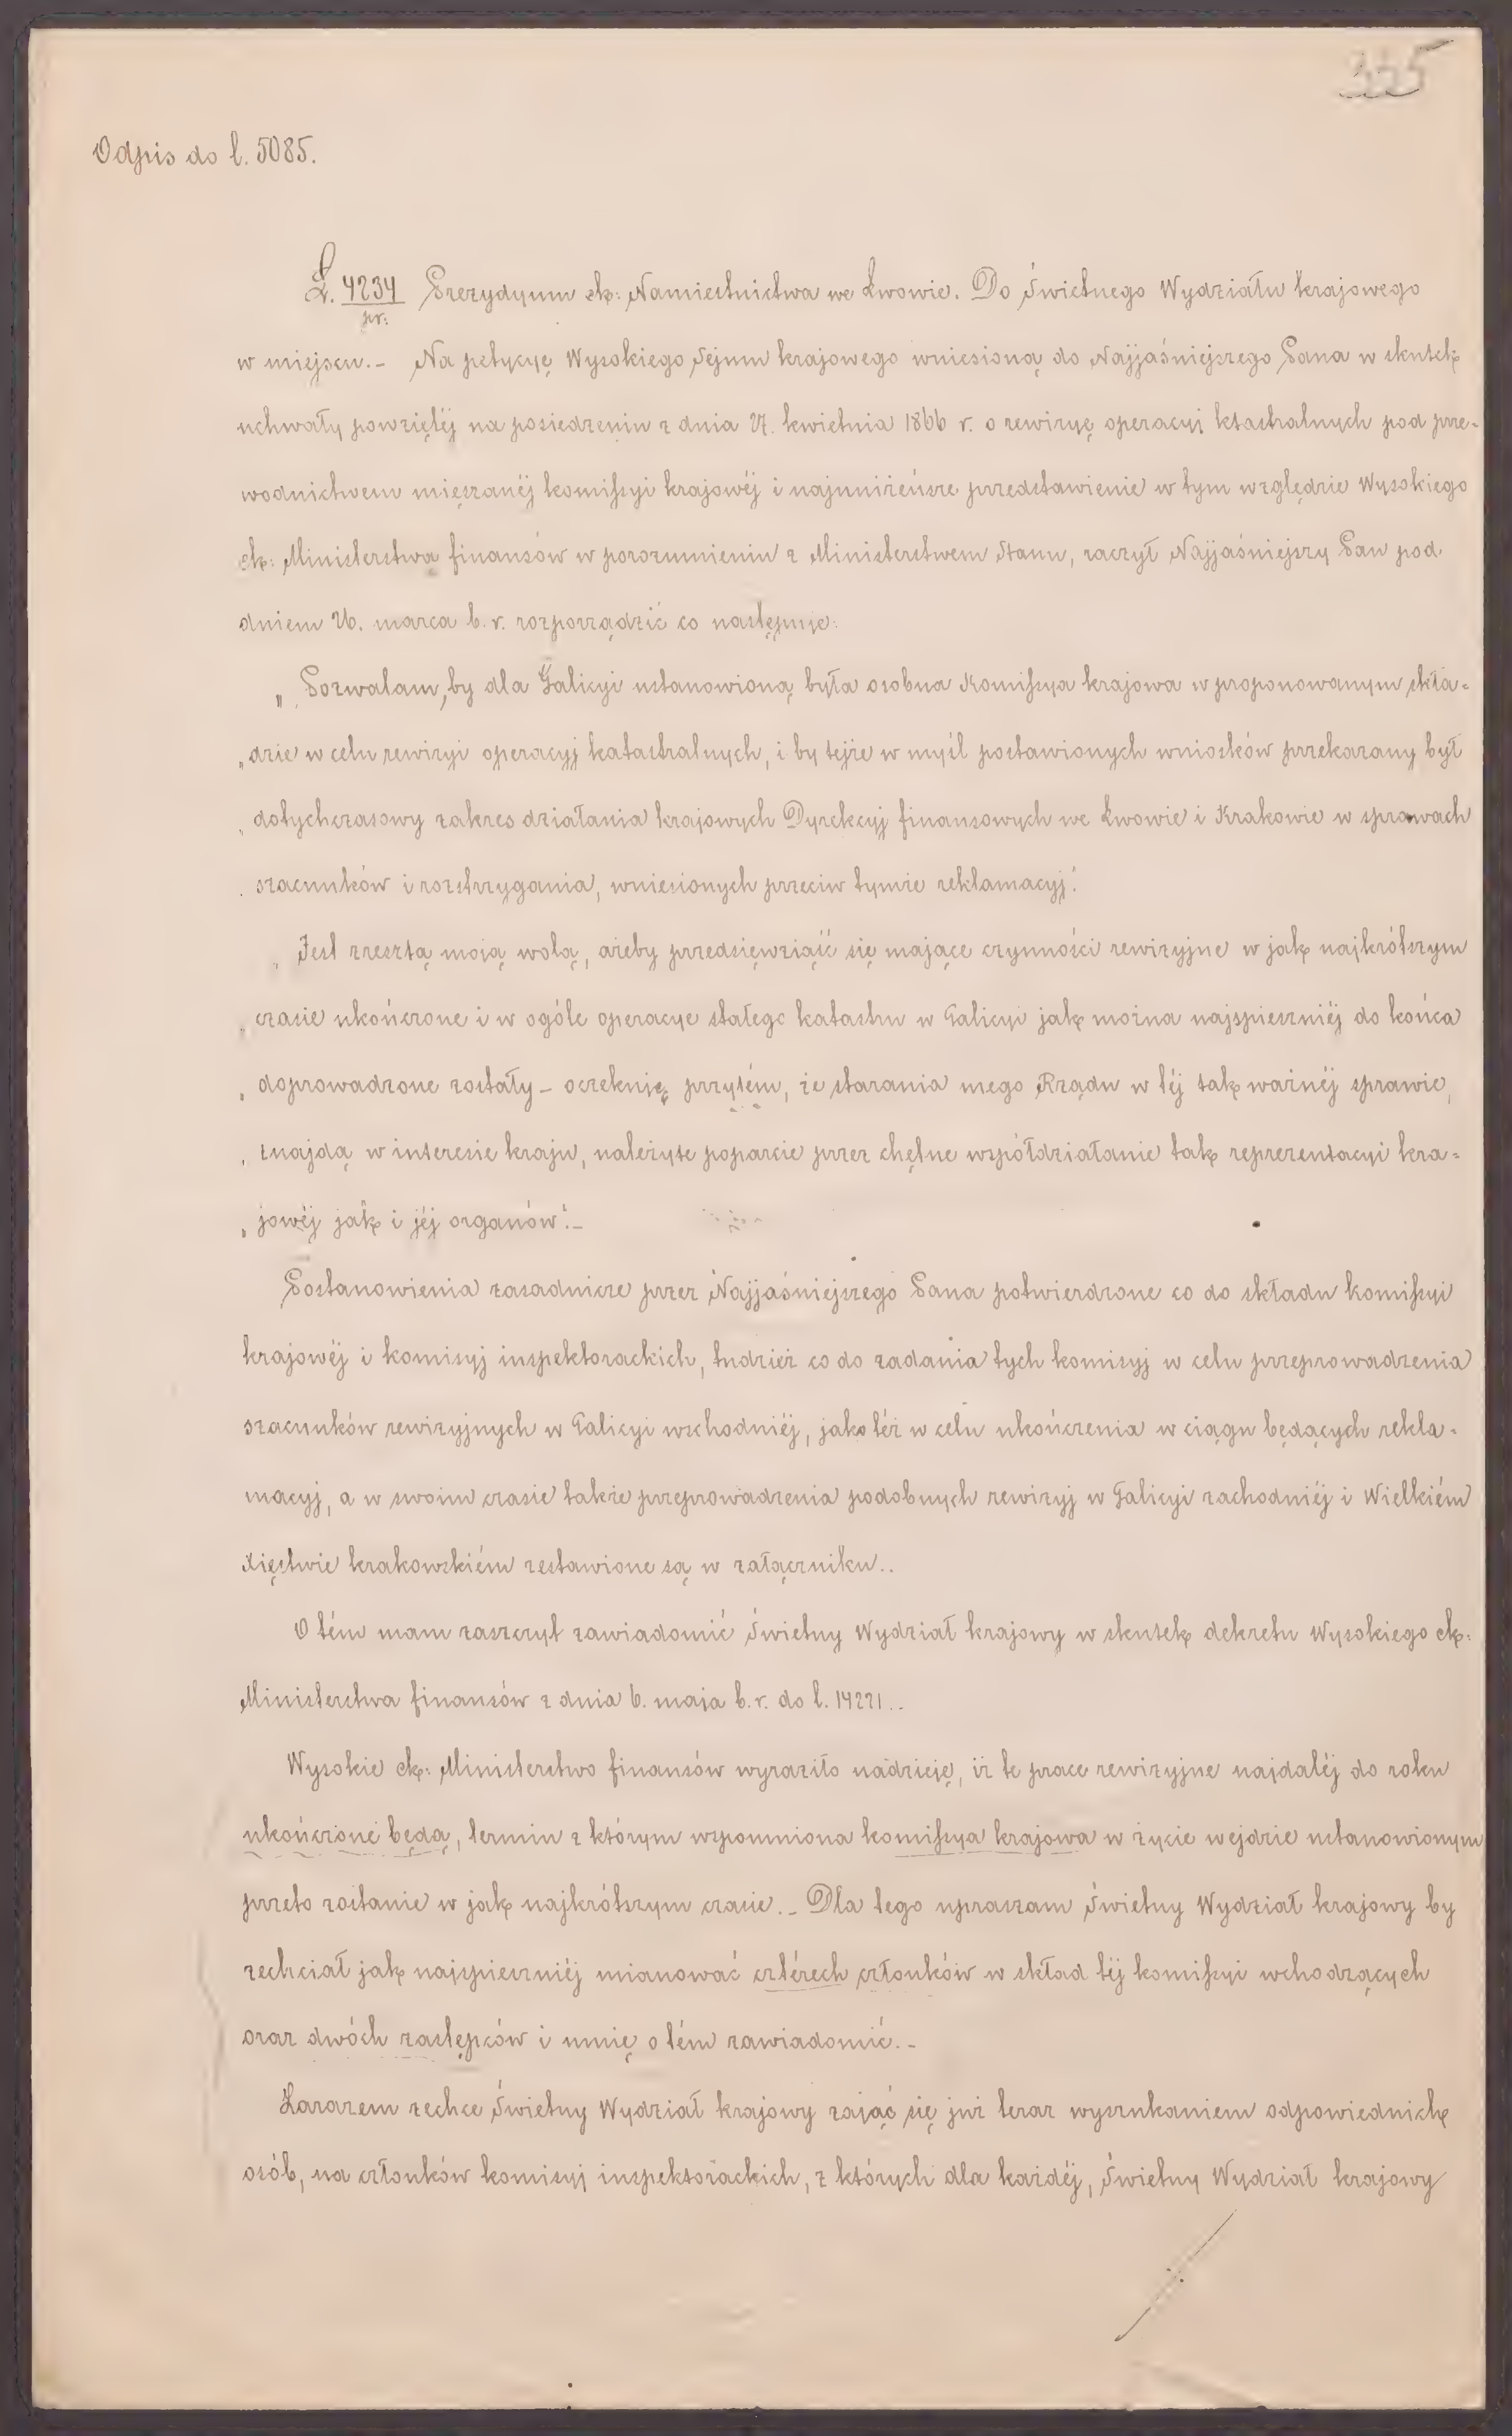 335
Odpis do l. 5085.
L. 4234/pr: Prezydyum ck: Namiestnictwa we Lwowie. Do Świetnego Wydziału krajowego
w miejscu.- Na petycyę Wysokiego Sejmu krajowego wniesioną do Najjaśniejszego Pana w skutek
uchwały powziętéj na posiedzeniu z dnia 27. kwietnia 1866 r. o rewizyę operacyi ktastralnych pod prze-
wodnictwem mięszanéj komissyi krajowéj i najuniżeńsze przedstawienie w tym względzie Wysokiego
ck: Ministerstwa finansów w porozumieniu z Ministerstwem Stanu, raczył Najjaśniejszy Pan pod
dniem 26. marca b. r. rozporządzić co następuje:
„ Pozwalam, by dla Galicyi ustanowioną była osobna Komissya krajowa w proponowanym skła-
„ dzie w celu rewizyi operacyj katastralnych, i by tejże w myśl postawionych wniosków przekazany był
„ dotychczasowy zakres działania krajowych Dyrekcyj finansowych we Lwowie i Krakowie w sprawach
„ szacunków i rozstrzygania, wniesionych przeciw tymże reklamacyj."
„ Jest zresztą moją wolą, ażeby przedsięwziąść się mające czynności rewizyjne w jak najkrótszym
„ czasie ukończone i w ogóle operacye stałego katastru w Galicyi jak można najspieszniéj do końca
„ doprowadzone zostały - oczekuję przytém, że starania mego Rządu w téj tak ważnéj sprawie,
„ znajdą w interesie kraju, należyte poparcie przez chętne współdziałanie tak reprezentacyi kra-
„ jowéj jak i jéj organów".-
Postanowienia zasadnicze przez Najjaśniejszego Pana potwierdzone co do składu komissyi
krajowéj i komisyj inspektorackich, tudzież co do zadania tych komisyj w celu przeprowadzenia
szacunków rewizyjnych w Galicyi wschodniéj, jako też w celu ukończenia w ciągu będących rekla-
macyj, a w swoim czasie także przeprowadzenia podobnych rewizyj w Galicyi zachodniéj i Wielkiém
Xięstwie krakowskiém zestawione są w załączniku..
O tém mam zaszczyt zawiadomić Świetny Wydział krajowy w skutek dekretu Wysokiego ck:
Ministerstwa finansów z dnia 6. maja b. r. do l. 14221..
Wysokie ck: Ministerstwo finansów wyraziło nadzieję, iż te prace rewizyjne najdaléj do roku
ukończone będą, termin z którym wspomniona komissya krajowa w życie wejdzie ustanowionym
przeto zostanie w jak najkrótszym czasie.- Dla tego upraszam Świetny Wydział krajowy by
zechciał jak najspieszniéj mianować cztérech członków w skład téj komissyi wchodzących
oraz dwóch zastępców i mnię o tém zawiadomić.-
Zarazem zechce Świetny Wydział krajowy zająć się już teraz wyszukaniem odpowiednich
osób, na członków komisyj inspektorackich, z których dla każdéj, Świetny Wydział krajowy